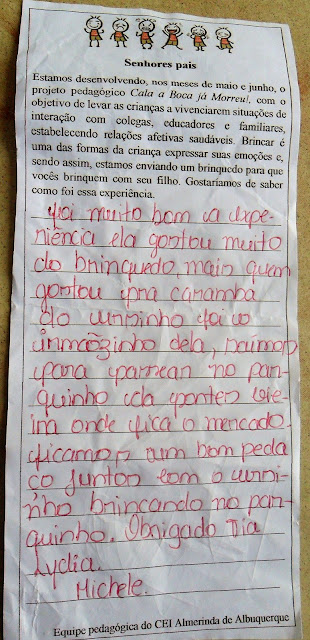 Senhores pais
Estamos desenvolvendo, nos meses de maio e junho, o
projeto pedagógico Cala a Boca já Morreu!, com o
objetivo de levar as crianças a vivenciarem situações de
interação com colegas, educadores e familiares,
estabelecendo relações afetivas saudáveis. Brincar é
uma das formas da criança expressar suas emoções e,
sendo assim, estamos enviando um brinquedo para que
vocês brinquem com seu filho. Gostaríamos de saber
como foi essa experiência.
Foi muito bom a expe-
riência ela gostou muito
do brinquedo, mais quem
gostou pra caramba
do ursinho foi o
irmãozinho dela, saimos
para passear no par-
quinho da
im onde fica o mercado
ficamos um bom peda
ço juntos com o ursi-
nho brincando no par-
quinho. Obrigado Tia
Lyclia.
Michele.
Equipe pedagógica do CEI Almerinda de Albuquerque